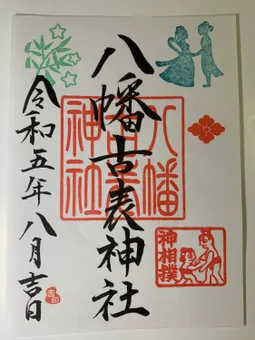 八幡古表神社
令和五年八月吉日
八幡古表神社
神相撲